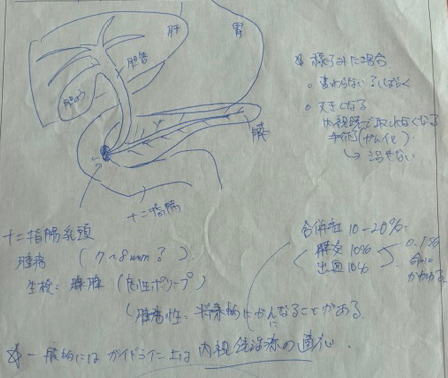 肝
胃
胆管
胆のう
膵
十二指腸
※ 様子みた場合
○ 変わらない
○ 大きくなる
内視鏡で取れなくなる
手術(ガン化)
↳ 治せない
十二指腸乳頭
腫瘍 (7~8mm?)
生検: 腺腫 (良性ポリープ)
腫瘍性: 将来的にがんになることがある
合併症 10~20%
膵炎 10%
出血 10%
0.1%
命にかかわる
※ 一般的にはガイドライン上は内視鏡治療の適応.